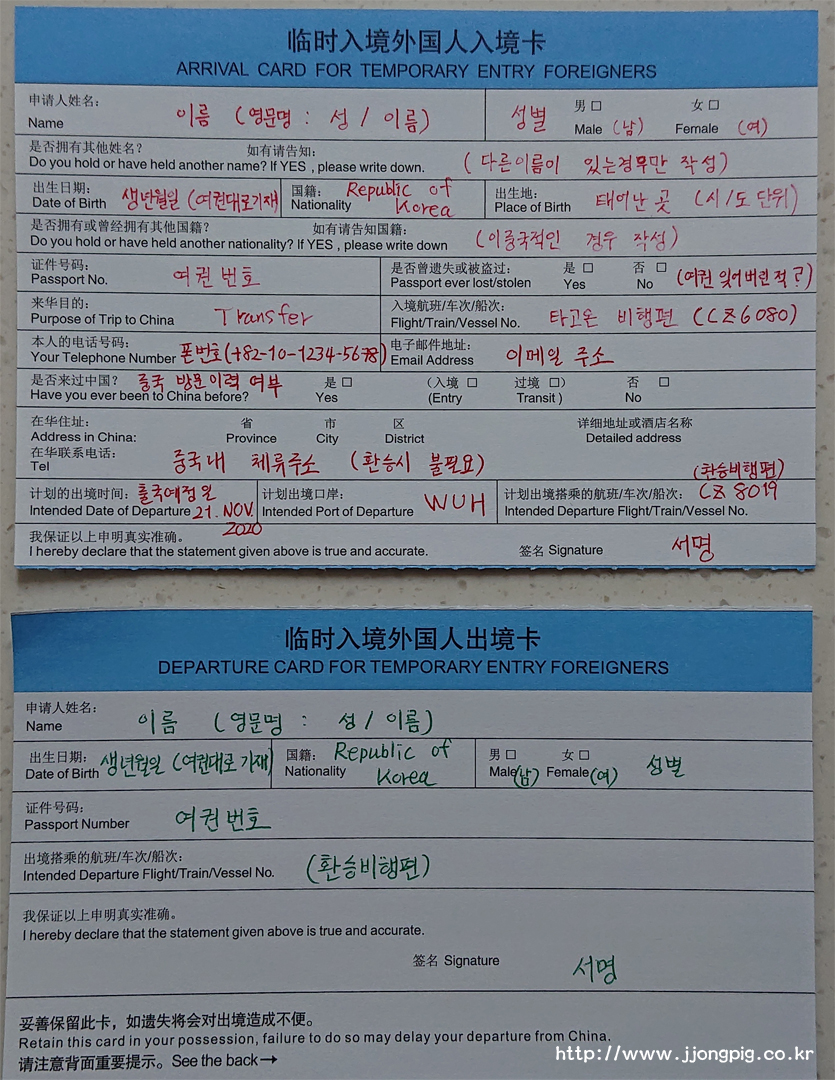 临时入境外国人入境卡
ARRIVAL CARD FOR TEMPORARY ENTRY FOREIGNERS
申请人姓名:
Name 이름 (영문명 : 성 / 이름) 성별 男 □ 女 □
Male (남) Female (여)
是否拥有其他姓名? 如有请告知:
Do you hold or have held another name? If YES , please write down. (다른이름이 있는경우만 작성)
出生日期: 国籍: 出生地:
Date of Birth 생년월일 (여권대로기재) Nationality Republic of Korea Place of Birth 태어난 곳 (시/도 단위)
是否拥有或曾经拥有其他国籍? 如有请告知国籍:
Do you hold or have held another nationality? If YES , please write down (이중국적인 경우 작성)
证件号码: 是否曾遗失或被盗过: 是 □ 否 □
Passport No. 여권 번호 Passport ever lost/stolen Yes No (여권 잊어버린 적?)
来华目的: 入境航班/车次/船次:
Purpose of Trip to China Transfer Flight/Train/Vessel No. 타고온 비행편 (CZ6080)
本人的电话号码: 电子邮件地址:
Your Telephone Number 폰번호(+82-10-1234-5678) Email Address 이메일 주소
是否来过中国? 중국 방문이력 여부 是 □ (入境 □ 过境 □) 否 □
Have you ever been to China before? Yes (Entry Transit ) No
在华住址: 省 市 区 详细地址或酒店名称
Address in China: Province City District Detailed address
在华联系电话:
Tel 중국내 체류주소 (환승시 불필요)
(환승비행편)
计划的出境时间: 출국예정일 计划出境口岸: 计划出境搭乘的航班/车次/船次: CZ 8019
Intended Date of Departure 21. NOV. 2020 Intended Port of Departure WUH Intended Departure Flight/Train/Vessel No.
我保证以上申明真实准确。
I hereby declare that the statement given above is true and accurate. 签名 Signature 서명
临时入境外国人出境卡
DEPARTURE CARD FOR TEMPORARY ENTRY FOREIGNERS
申请人姓名:
Name 이름 (영문명 : 성 / 이름)
出生日期: 国籍: 男 □ 女 □
Date of Birth 생년월일 (여권대로 기재) Nationality Republic of Korea Male(남) Female(여) 성별
证件号码:
Passport Number 여권 번호
出境搭乘的航班/车次/船次:
Intended Departure Flight/Train/Vessel No. (환승비행편)
我保证以上申明真实准确。
I hereby declare that the statement given above is true and accurate.
签名 Signature 서명
妥善保留此卡，如遗失将会对出境造成不便。
Retain this card in your possession, failure to do so may delay your departure from China.
请注意背面重要提示。See the back→
http://www.jjongpig.co.kr